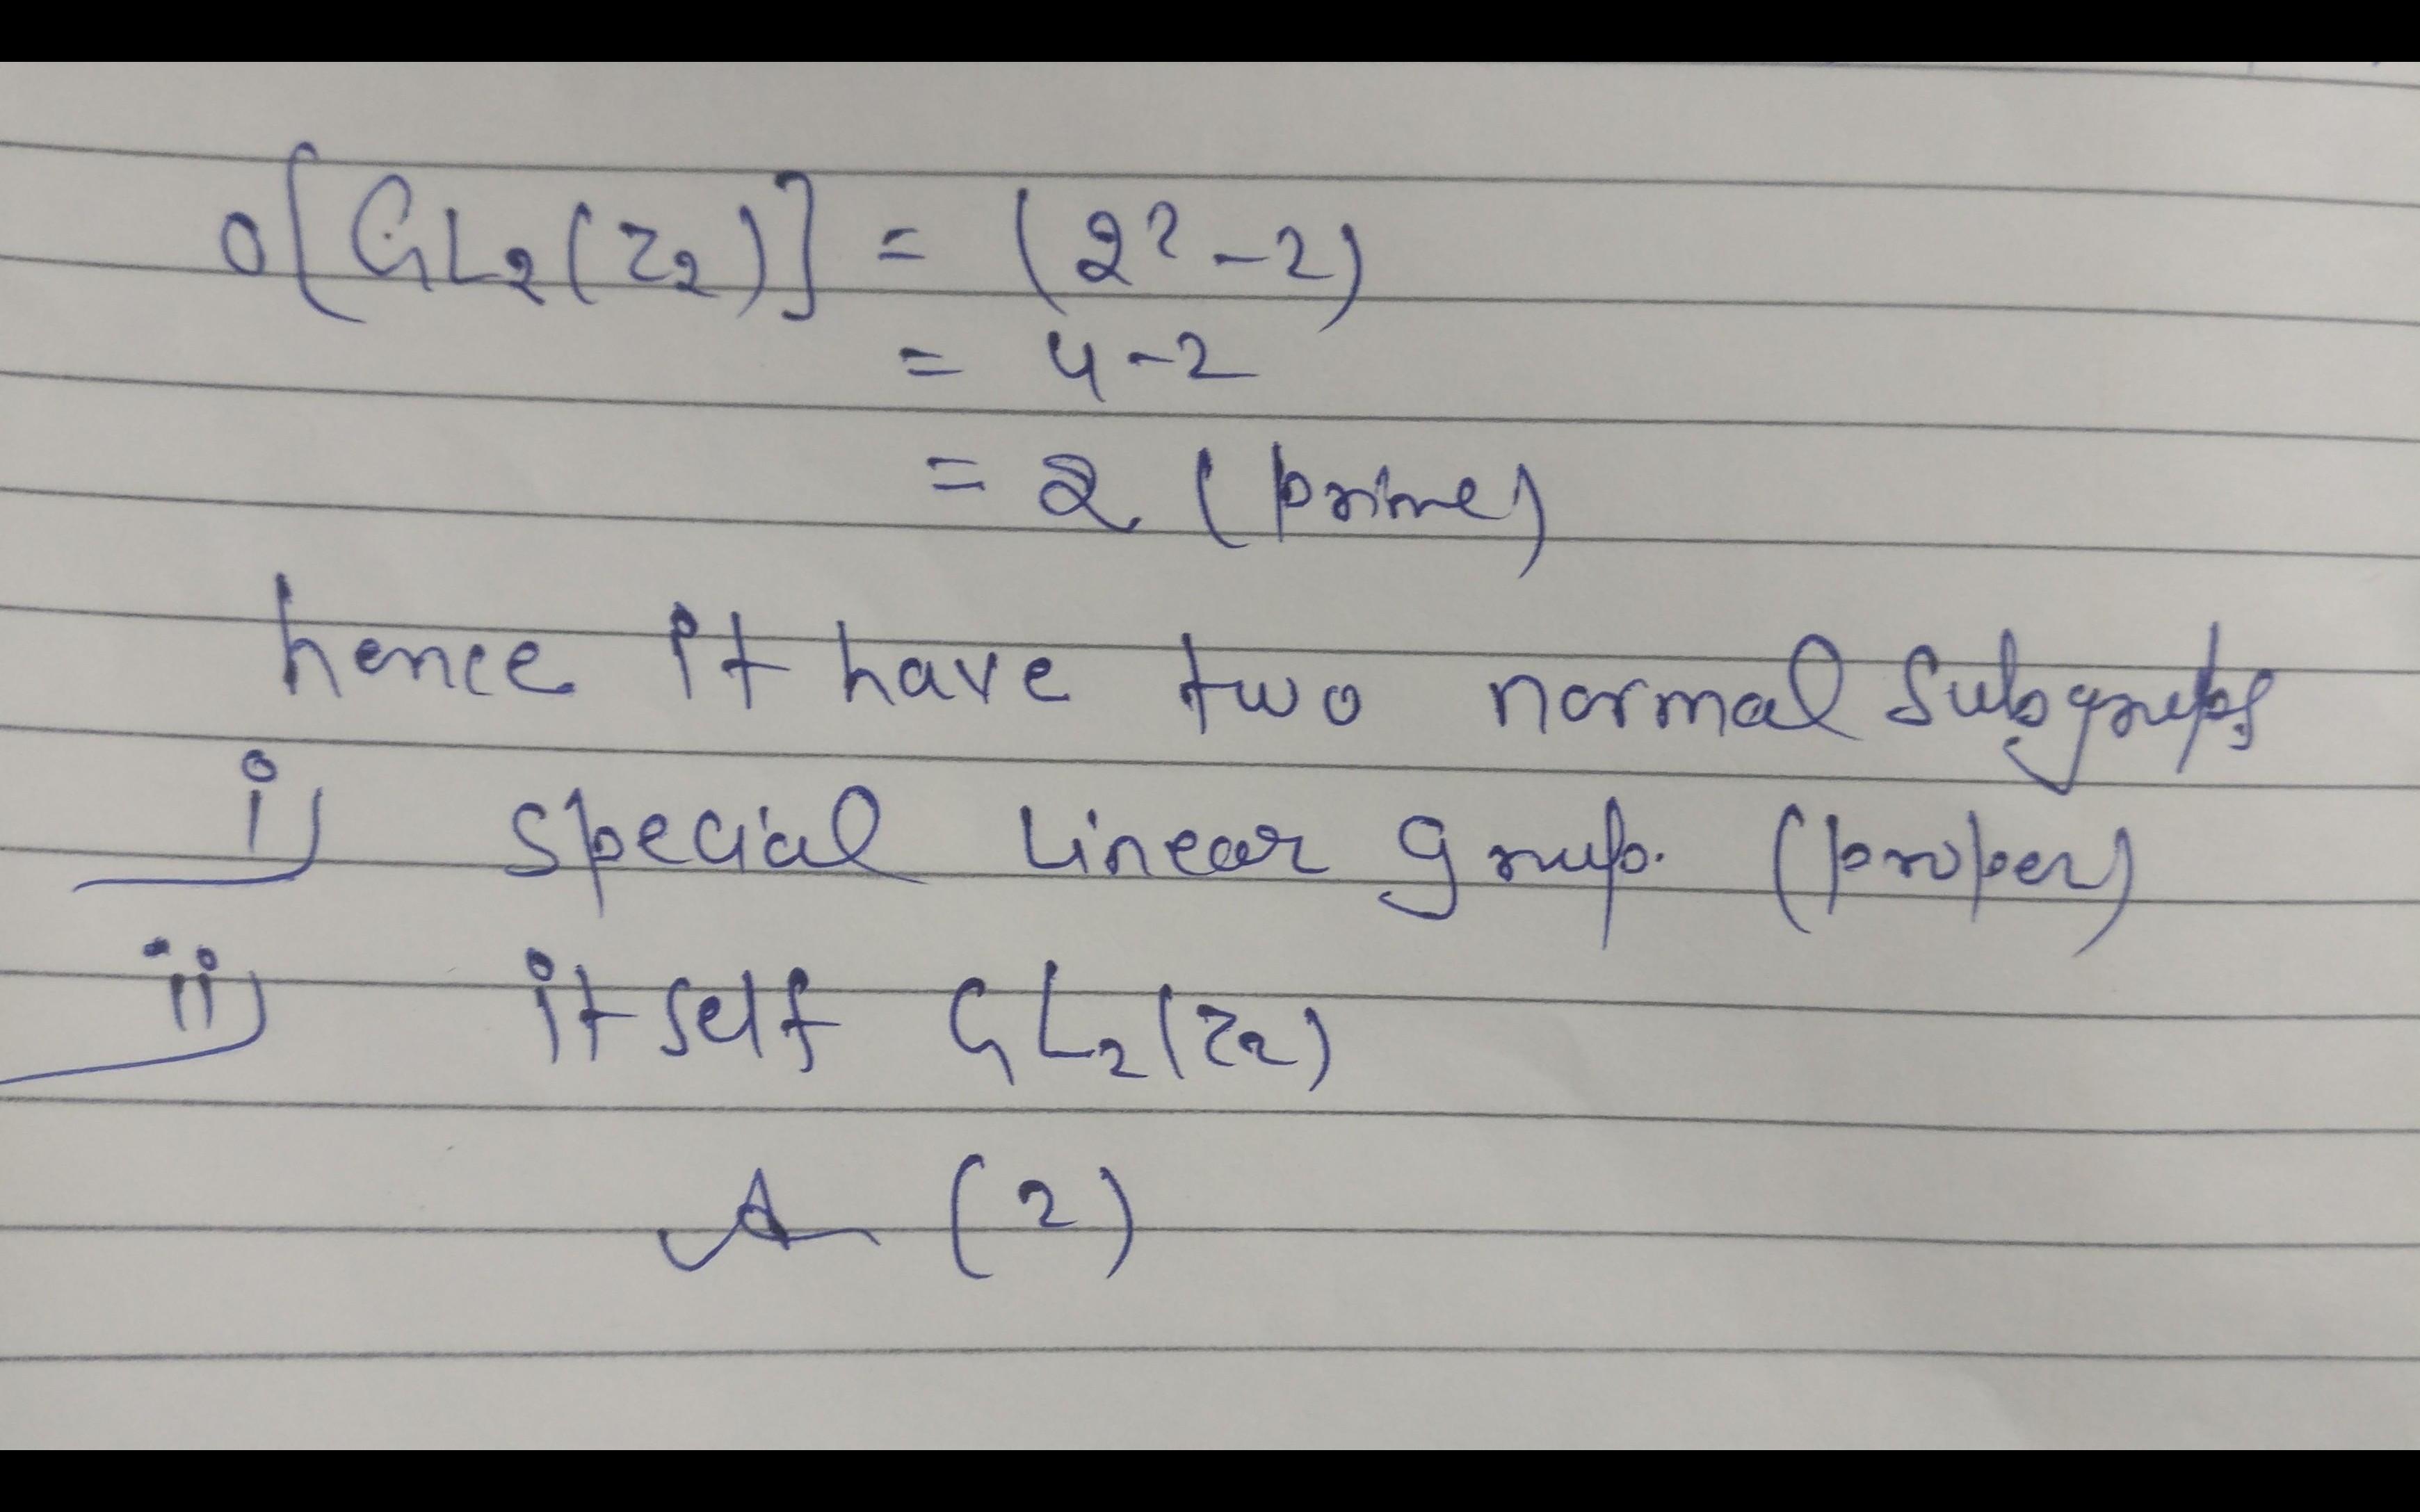 o[GL₂(Z₂)] = (2² - 2)
= 4 - 2
= 2 (prime)
hence it have two normal subgroups
i) special linear group. (proper)
ii) itself GL₂(Z₂)
(2)